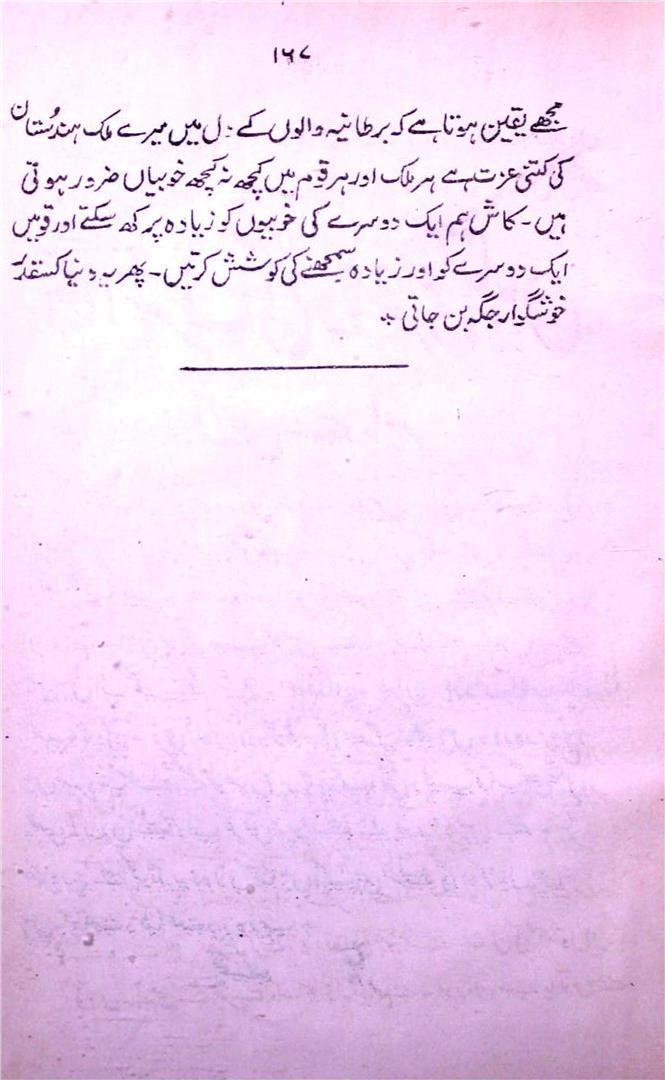 ۱۶۷
مجھے یقین ہوتا ہے کہ برطانیہ والوں کے دل میں میرے ملک ہندُستان
کی کتنی عزت ہے ہر ملک اور ہر قوم میں کچھ نہ کچھ خوبیاں ضرور ہوتی
ہیں۔ کاش ہم ایک دوسرے کی خوبیوں کو زیادہ پرکھ سکتے اور قومیں
ایک دوسرے کو اور زیادہ سمجھنے کی کوشش کرتیں۔ پھر یہ دنیا کسقدر
خوشگوار جگہ بن جاتی ۔